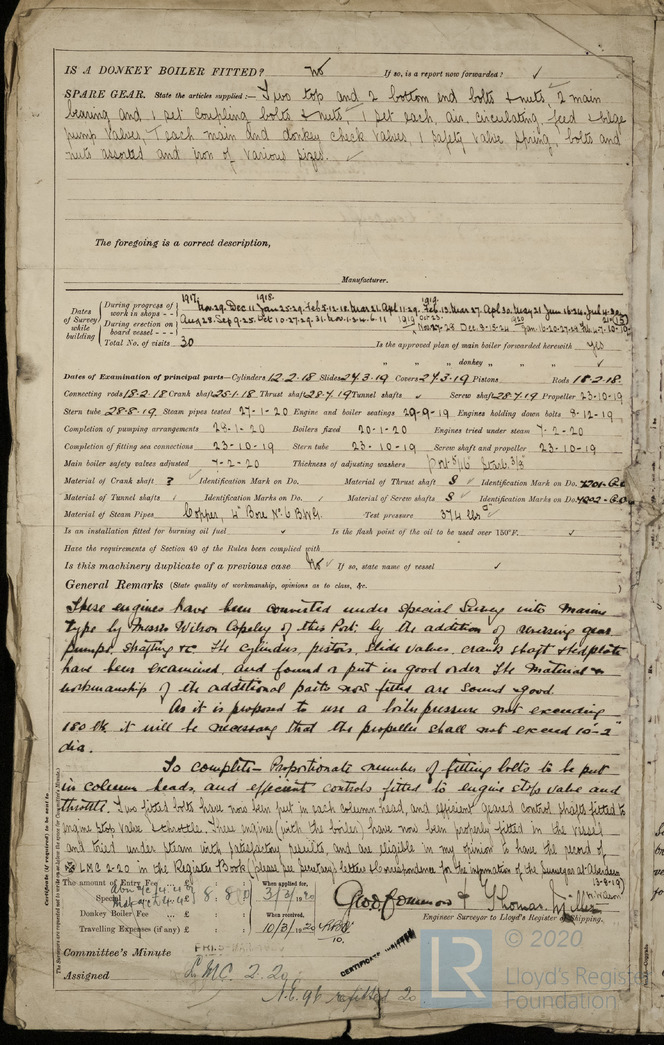 IS A DONKEY BOILER FITTED? No If so, is a report now forwarded? ✓
SPARE GEAR. State the articles supplied:— Two top and 2 bottom end bolts & nuts, 2 main
bearing and 1 set coupling bolts & nuts, 1 set each, air, circulating, feed & bilge
pump valves, 1 each main and donkey check valves, 1 safety valve spring, bolts and
nuts assorted and iron of various sizes.
The foregoing is a correct description,
Manufacturer.
Dates of Survey while building
During progress of work in shops - - 1917. Nov. 29. Dec. 11. 1918. Jan. 25-29. Feb. 5-12-18. Mar. 21. Apl. 11-29. 1919. Feb. 13. Mar. 27. Apl. 30. May 21. Jun. 16-24. Jul.
During erection on board vessel - - - Aug 28. Sep 9-25. Oct 10-27-29-31. Nov. 1-2-4-6-11
Total No. of visits 30 Is the approved plan of main boiler forwarded herewith yes
" " " donkey " " "
Dates of Examination of principal parts—Cylinders 12.2.18 Slides 27.3.19 Covers 27.3.19 Pistons Rods 18.2.18.
Connecting rods 18.2.18 Crank shaft 25.1.18 Thrust shaft 28.7.19 Tunnel shafts ✓ Screw shaft 28.7.19 Propeller 23-10-19
Stern tube 28.8.19 Steam pipes tested 27-1-20 Engine and boiler seatings 29-9-19 Engines holding down bolts 8-12-19
Completion of pumping arrangements 28-1-20 Boilers fixed 20-1-20 Engines tried under steam 7-2-20
Completion of fitting sea connections 23-10-19 Stern tube 23-10-19 Screw shaft and propeller 23-10-19
Main boiler safety valves adjusted 7-2-20 Thickness of adjusting washers Port 5/16 Starb. 3/8"
Material of Crank shaft ? Identification Mark on Do. Material of Thrust shaft S Identification Mark on Do. 4201
Material of Tunnel shafts Identification Marks on Do. Material of Screw shafts S Identification Marks on Do. 4202
Material of Steam Pipes Copper, 4" Bore No. 6 B.W.G. Test pressure 374 lbs
Is an installation fitted for burning oil fuel ✓ Is the flash point of the oil to be used over 150°F. ✓
Have the requirements of Section 49 of the Rules been complied with
Is this machinery duplicate of a previous case No If so, state name of vessel ✓
General Remarks (State quality of workmanship, opinions as to class, &c.
These engines have been converted under special survey into marine
type by Messrs Wilson Copeley of this Port, by the addition of reversing gear
pumps, shafting &c. The cylinders, pistons, slide valves, crank shaft & bedplate
have been examined, and found or put in good order. The material &
workmanship of the additional parts now fitted are sound & good.
As it is proposed to use a boiler pressure not exceeding
180 lb, it will be necessary that the propeller shall not exceed 10-2"
dia.
To complete — Proportionate number of fitting bolts to be put
in column heads, and efficient controls fitted to engine stop valve and
throttle. Two fitted bolts have now been put in each column head, and efficient geared control shafts fitted to
engine stop valve & throttle. These engines (with the boiler) have now been properly fitted in the vessel
and tried under steam with satisfactory results, and are eligible in my opinion to have the record of
LMC 2-20 in the Register Book (please see Secretary's letters & correspondence for the information of the Surveyor at Aberdeen
13-8-19)
The amount of Entry Fee .. £ : : When applied for,
Special £ 8 : 8 3/3/1920
Donkey Boiler Fee £ : : When received,
Travelling Expenses (if any) £ : : 10/3/1920
Engineer Surveyor to Lloyd's Register of Shipping.
Committee's Minute
Assigned LMC. 2.20
N.E. 96 refitted 20
CERTIFICATE WRITTEN
Certificate (if required) to be sent to
© 2020
LR Lloyd's Register
Foundation